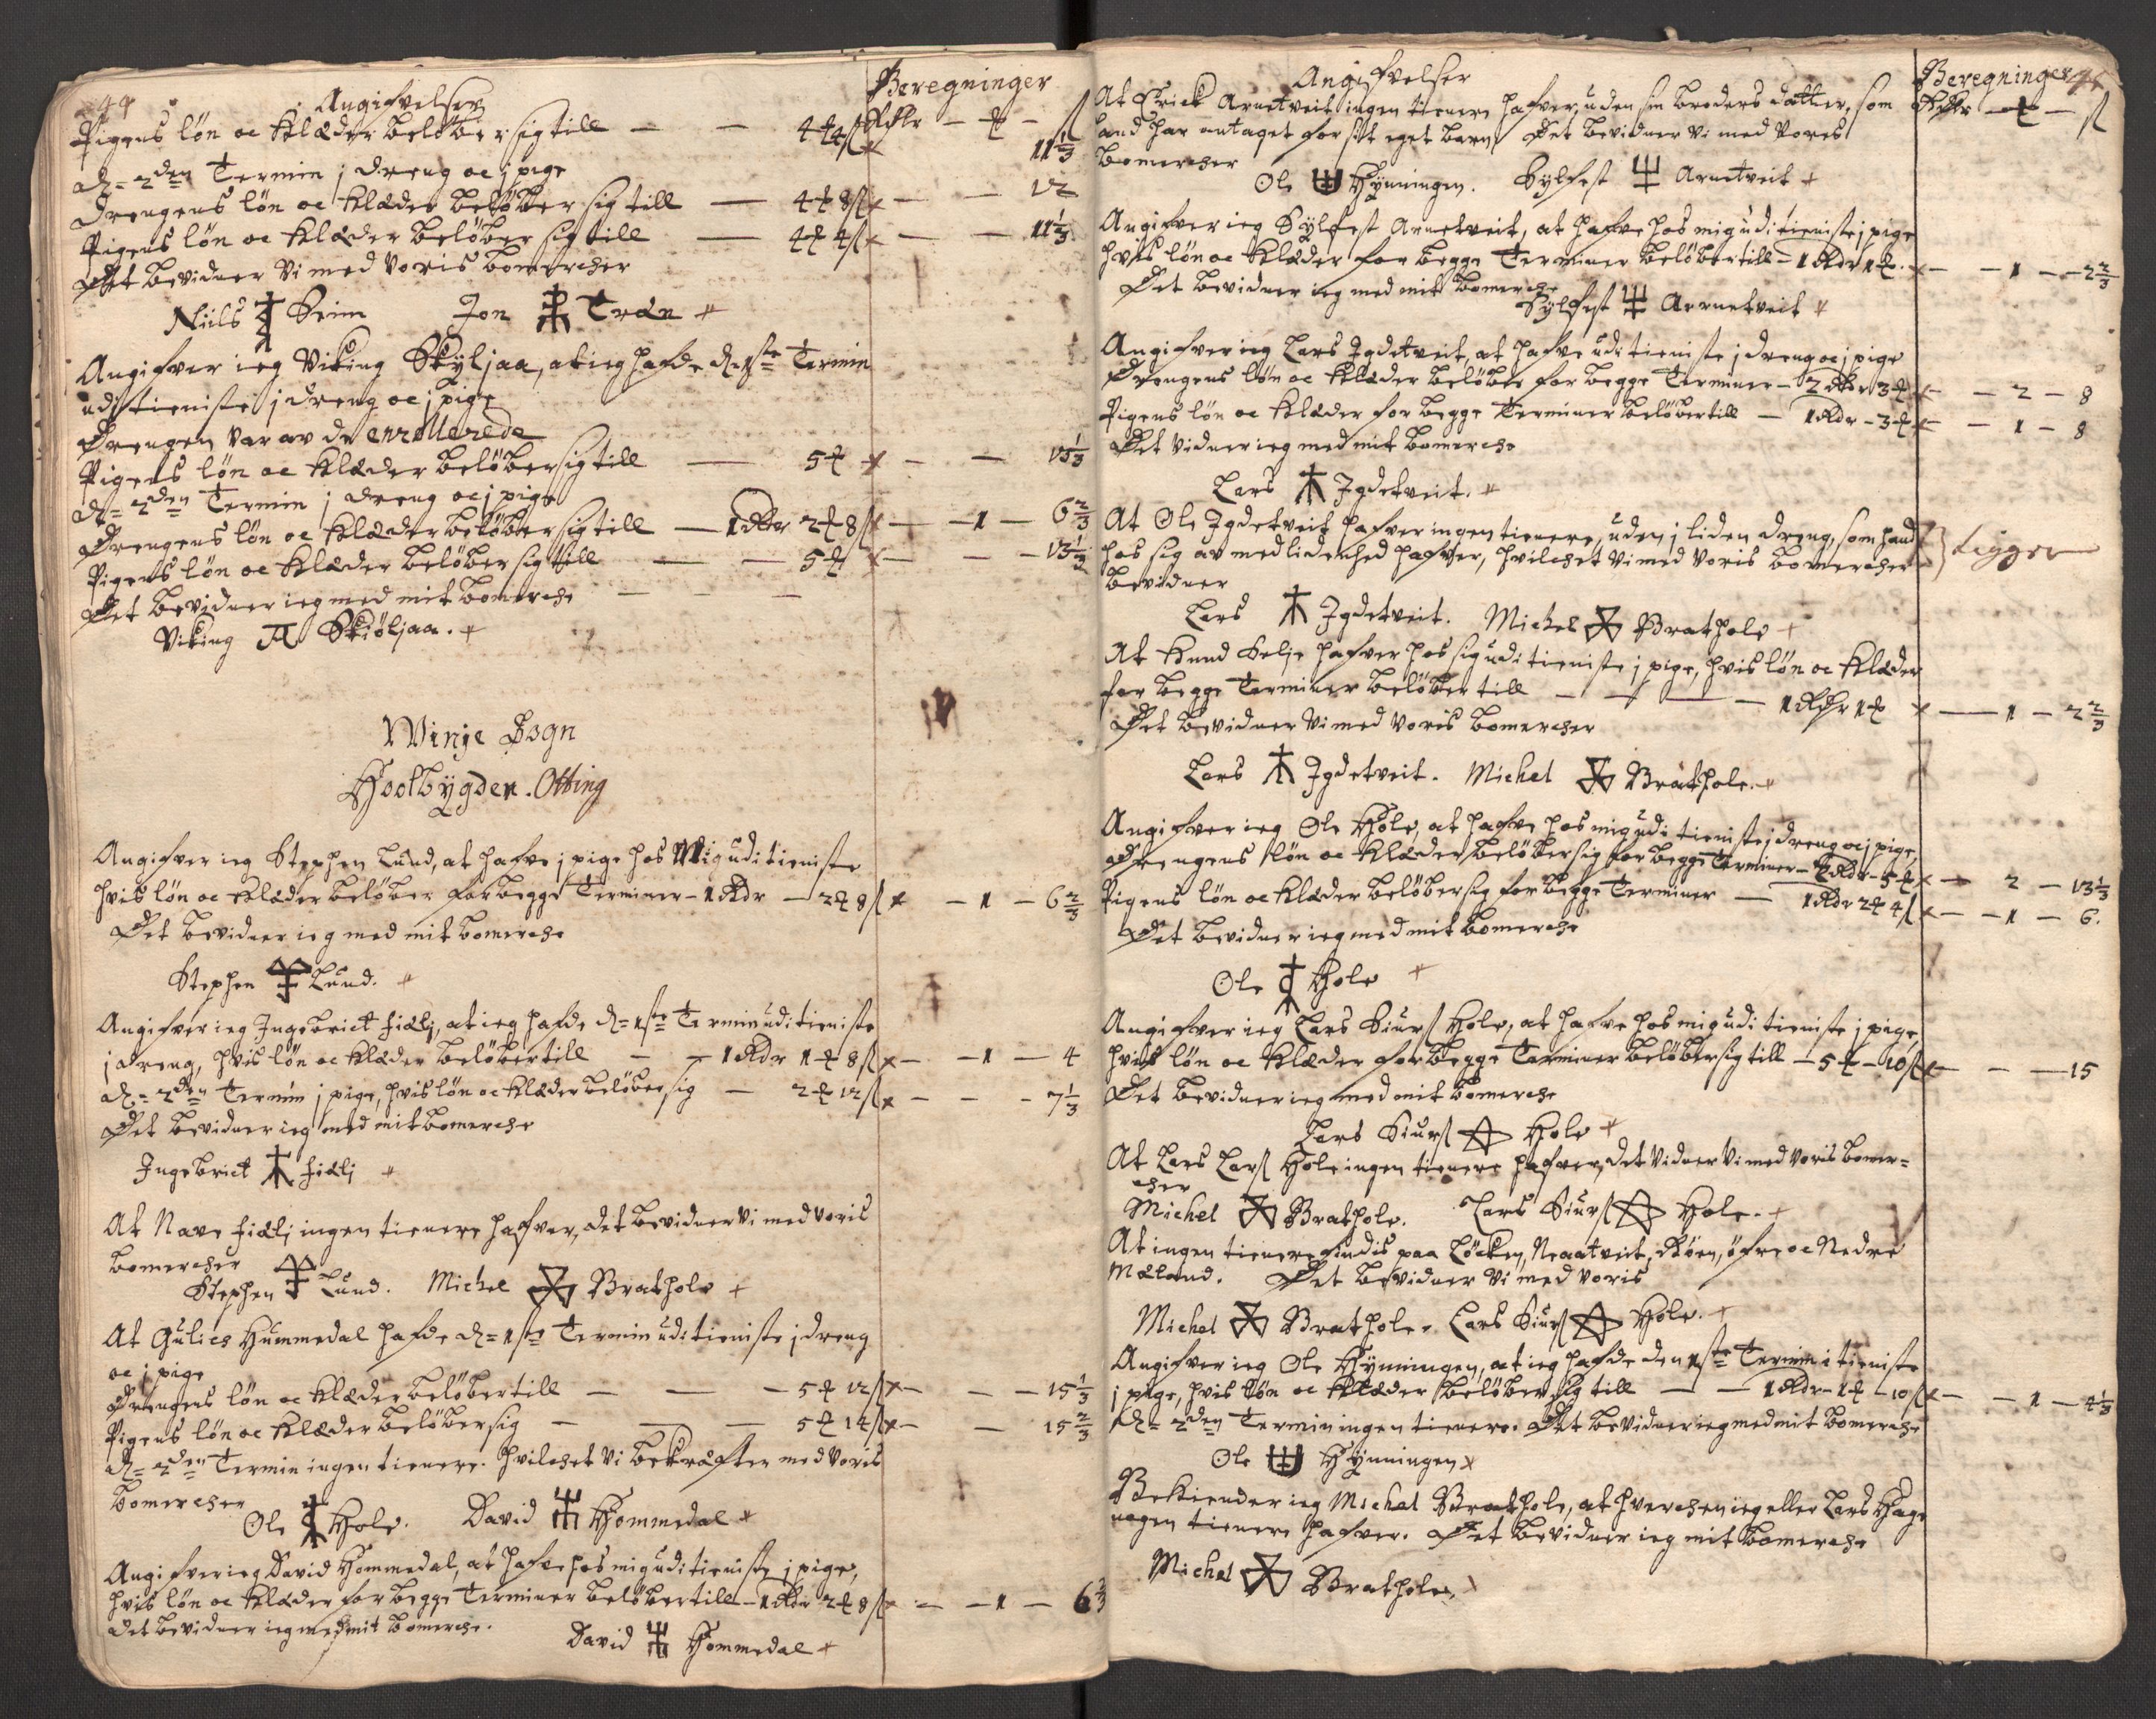 44
Angifvelser
Beregninger
Rdlr — ₰ — ß
Pigens løn oc Klæder beløber sig till — — 4 ₰ 4 ß × 11 1/3
d= 2den Termin j dreng oc j pige
Drengens løn oc Klæder beløber sig till — 4 ₰ 8 ß × — — 12
Pigens løn oc Klæder beløber sig till — 4 ₰ 4 ß × — — 11 1/3
Det bevidner Vi med Voris bomercher
Niils Seim Jon Træn
Angifver ieg Viking Skyljaa, at ieg hafde d= 1ste Termin
udi tieniste j dreng oc j pige
Drengen Var av de enrollerede
Pigens løn oc Klæder beløber sig till — 5 ₰ × — — 13 1/3
d= 2den Termin j dreng oc j pige
Drengens løn oc Klæder beløber sig till — 1 Rdr 2 ₰ 8 ß × — — 1 — 6 2/3
Pigens løn oc Klæder beløber sig till — — 5 ₰ × — — — 13 1/3
Det bevidner ieg med mit bomerche — — —
Viking Skiøljaa.
Winje Sogn
Hoolbygden. Otting
Angifver ieg Stephen Lund, at hafve j pige hos Mig udi tieniste
hvis løn oc Klæder beløber for begge Terminer — 1 Rdr — 2 ₰ 8 ß × — 1 — 6 2/3
Det bevidner ieg med mit bomerche
Stephen Lund.
Angifver ieg Ingebrict fiælj, at ieg hafde d= 1ste Termin udi tieniste
j dreng, hvis løn oc Klæder beløber till — — 1 Rdr 1 ₰ 8 ß × — — 1 — 4
d= 2den Termin j pige, hvis løn oc Klæder beløber sig — 2 ₰ 12 ß × — — — 7 1/3
Det bevidner ieg med mit bomerche
Ingebrict fiælj
At Nave fiælj ingen tienere hafver, det bevidner Vi med Voris
bomercher
Stephen Lund. Michel Brathole
At Gulics Hummedal hafde d= 1ste Termin udi tieniste j dreng
oc j pige
Drengens løn oc Klæder beløber till — — — 5 ₰ 12 ß × — — — 15 1/3
Pigens løn oc Klæder beløber sig — — — 5 ₰ 14 ß × — — 15 2/3
d= 2den Termin ingen tienere. hvilchet Vi bekræfter med Voris
bomercher
Ole Hole. David Hommedal
Angifver ieg David Hommedal, at hafve hos mig udi tieniste j pige,
hvis løn oc Klæder for begge Terminer beløber till — 1 Rdr 2 ₰ 8 ß × — — 1 — 6 2/3
Det bevidner ieg med mit bomerche.
David Hommedal
Angifvelser
Beregninger
Rdlr — ₰ — ß
At Erick Arnetveit ingen tienere hafver, uden sin broders datter, som
hand har antaget for sit eget barn Det bevidner Vi med Vores
bomercher
Ole Hynningen. Sylfest Arnetveit
Angifver ieg Sylfest Arnetveit, at hafve hos mig udi tieniste j pige
hvis løn oc Klæder for begge Terminer beløber till — 1 Rdr 1 ₰. × — — 1 — 2 2/3
Det bevidner ieg med mit bomerche
Sylfest Arrnetveit
Angifver ieg Lars Jgdetveit, at hafve udi tieniste j dreng oc j pige
Drengens løn oc Klæder beløber for begge Terminer — 2 Rdr 3 ₰ × — — 2 — 8
Pigens løn oc Klæder for begge Terminer beløber till — 1 Rdr — 3 ₰ × — — 1 — 8
Det Vidner ieg med mit bomerche
Lars Jgdetveit.
At Ole Jgdetveit hafver ingen tienere, uden j liden dreng, som hand
hos sig av medlidenhed hafver, hvilchet Vi med Voris bomercher
bevidner
Tigger
Lars Jgdetveit. Michel Brathole
At Knud Selje hafver hos sig udi tieniste j pige, hvis løn oc Klæder
for begge Terminer beløber till — — — — 1 Rdr 1 ₰ × — 1 — 2 2/3
Det bevidner Vi med Voris bomercher
Lars Jgdetveit. Michel Brathole.
Angifver ieg Ole Hole, at hafve hos mig udi tieniste j dreng oc j pige,
Drengens løn oc Klæder beløber sig for begge Terminer — 2 Rdr — 5 ₰ × — 2 — 13 1/3
Pigens løn oc Klæder beløber sig for begge Terminer — 1 Rdr 2 ₰ 4 ß × — — 1 — 6.
Det bevidner ieg med mit bomerche
Ole Hole
Angifver ieg Lars Siurß Hole, at hafve hos mig udi tieniste j pige
hvis løn oc Klæder for begge Terminer beløber sig till — 5 ₰ — 10 ß × — — — 15
Det bevidner ieg med mit bomerche
Lars Siurß Hole
At Lars Larß Hole ingen tienere hafver, det Vidner Vi med Voris bomer=
cher
Michel Brathole. Lars Siurß Hole.
At ingen tienere findis paa Løcken, Nraatveit, Røen, øfre oc Nedre
Mæland. Det bevidner Vi med Voris
Michel Brathole. Lars Siurß Hole.
Angifver ieg Ole Hynningen, at ieg hafde den 1ste Termin i tieniste
j pige, hvis løn oc Klæder beløber sig till — — 1 Rdr — 1 ₰ — 10 ß × — — 1 — 4 1/3
d= 2den Termin ingen tienere. Det bevidner ieg med mit bomerche
Ole Hynningen
Bekiender ieg Michel Brathole, at hverchen ieg eller Lars Hage
nogen tienere hafver. Det bevidner ieg mit bomerche
Michel Brathole.